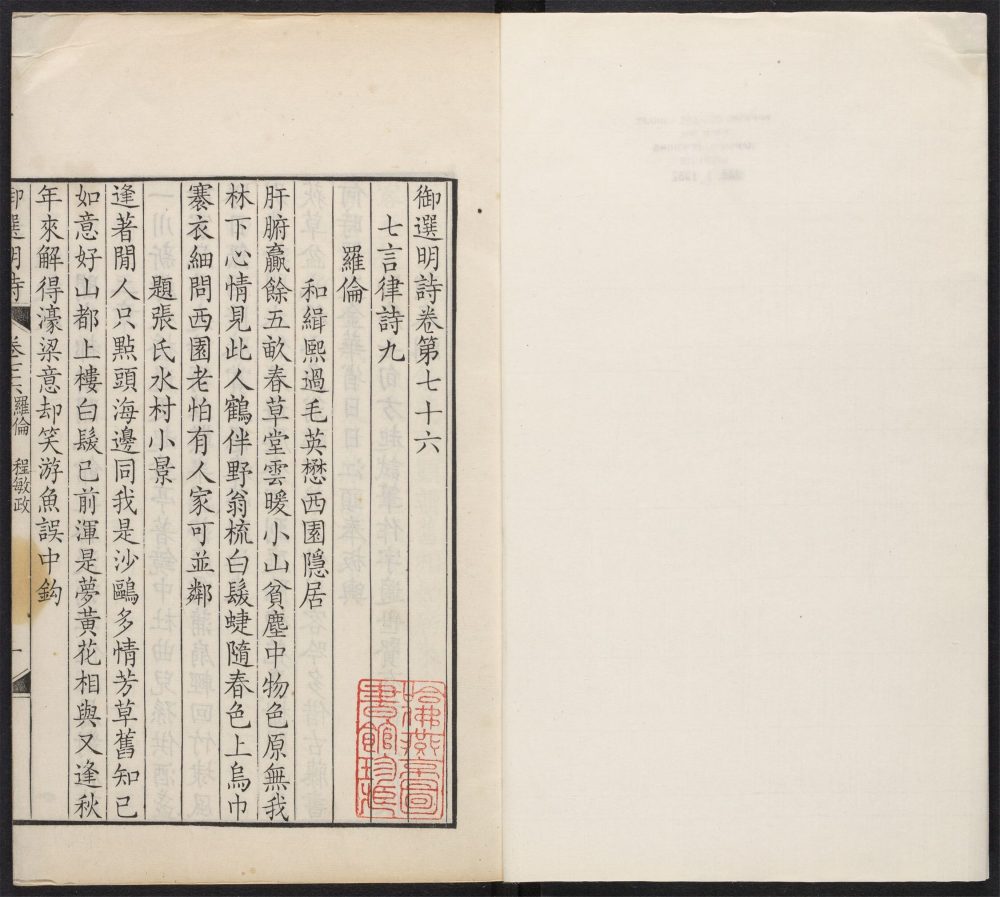 御選明詩卷第七十六
七言律詩九
羅倫
和緝熙過毛英懋西園隱居
肝腑贏餘五畝春草堂雲暖小山貧塵中物色原無我
林下心情見此人鶴伴野翁梳白髮蜨隨春色上烏巾
褰衣細問西園老怕有人家可並鄰
題張氏水村小景
逢著閒人只點頭海邊同我是沙鷗多情芳草舊知已
如意好山都上樓白髮已前渾是夢黃花相與又逢秋
年來解得濠梁意却笑游魚誤中鈎
御選明詩 卷七十六 羅倫 程敏政 一
哈佛燕京圖書館珍藏